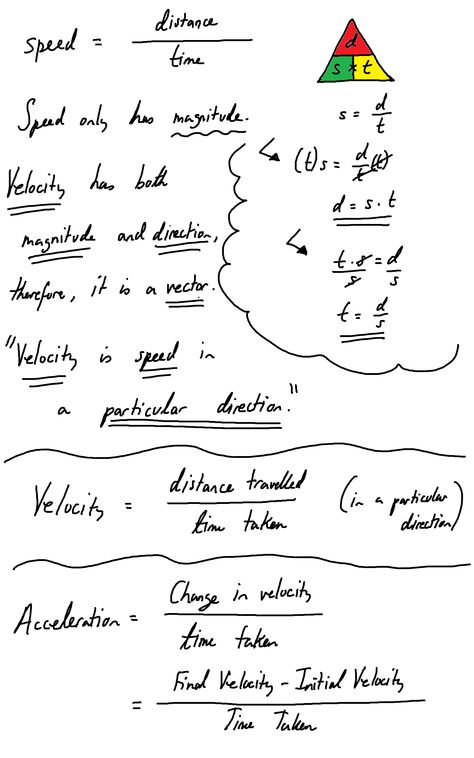 speed = distance / time
d
s × t
Speed only has magnitude.
s = d/t
(t)s = d/t (t)
d = s · t
t · s/s = d/s
t = d/s
Velocity has both
magnitude and direction,
therefore, it is a vector.
"Velocity is speed in
a particular direction."
Velocity = distance travelled / time taken (in a particular direction)
Acceleration = Change in velocity / time taken
= Final Velocity - Initial Velocity / Time Taken